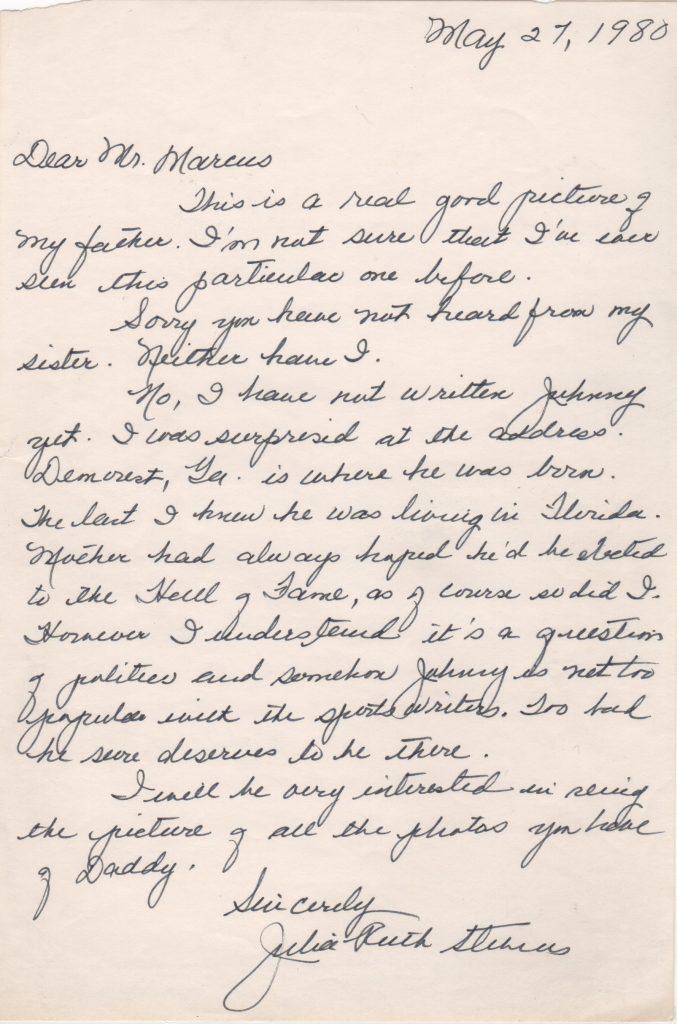 May 27, 1980
Dear Mr. Marcus
This is a real good picture of
my father. I'm not sure that I've ever
seen this particular one before.
Sorry you have not heard from my
sister. Neither have I.
No, I have not written Johnny
yet. I was surprised at the address.
Demorest, Ga. is where he was born.
The last I knew he was living in Florida.
Mother had always hoped he'd be elected
to the Hall of Fame, as of course so did I.
However I understand it's a question
of politics and somehow Johnny is not too
popular with the sports writers. Too bad
he sure deserves to be there.
I will be very interested in seeing
the picture of all the photos you have
of Daddy.
Sincerely
Julia Ruth Stevens